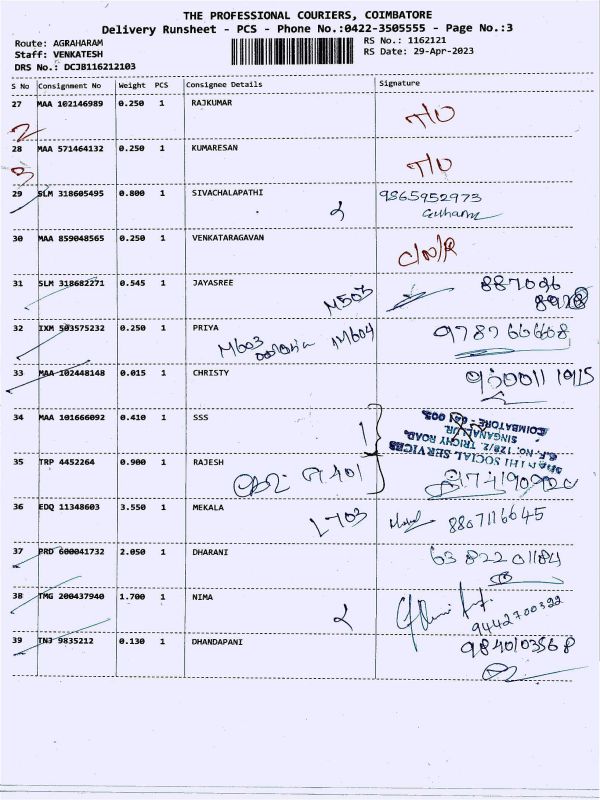 THE PROFESSIONAL COURIERS, COIMBATORE
Delivery Runsheet - PCS - Phone No.:0422-3505555 - Page No.:3
Route: AGRAHARAM
RS No.: 1162121
Staff: VENKATESH
RS Date: 29-Apr-2023
DRS No.: DCJB116212103
S No Consignment No Weight PCS Consignee Details Signature
27 MAA 102146989 0.250 1 RAJKUMAR T/U
2
28 MAA 571464132 0.250 1 KUMARESAN T/U
3
29 SLM 318605495 0.800 1 SIVACHALAPATHI 9865952973
30 MAA 859048565 0.250 1 VENKATARAGAVAN C/N/R
31 SLM 318682271 0.545 1 JAYASREE M503 887096
8928
32 IXM 503575232 0.250 1 PRIYA 9787666608
M603 M604
33 MAA 102448148 0.015 1 CHRISTY 950011 1915
34 MAA 101666092 0.410 1 SSS
SHANTHI SOCIAL SERVICES
S.F. NO: 128/2, TRICHY ROAD,
SINGANALLUR,
COIMBATORE - 641 005.
35 TRP 4452264 0.900 1 RAJESH
36 EDQ 11348603 3.550 1 MEKALA L-703 8807116645
37 PRD 600041732 2.050 1 DHARANI 63 822 01184
38 TMG 200437940 1.700 1 NIMA 9442700322
39 TNJ 9835212 0.130 1 DHANDAPANI 9840103568